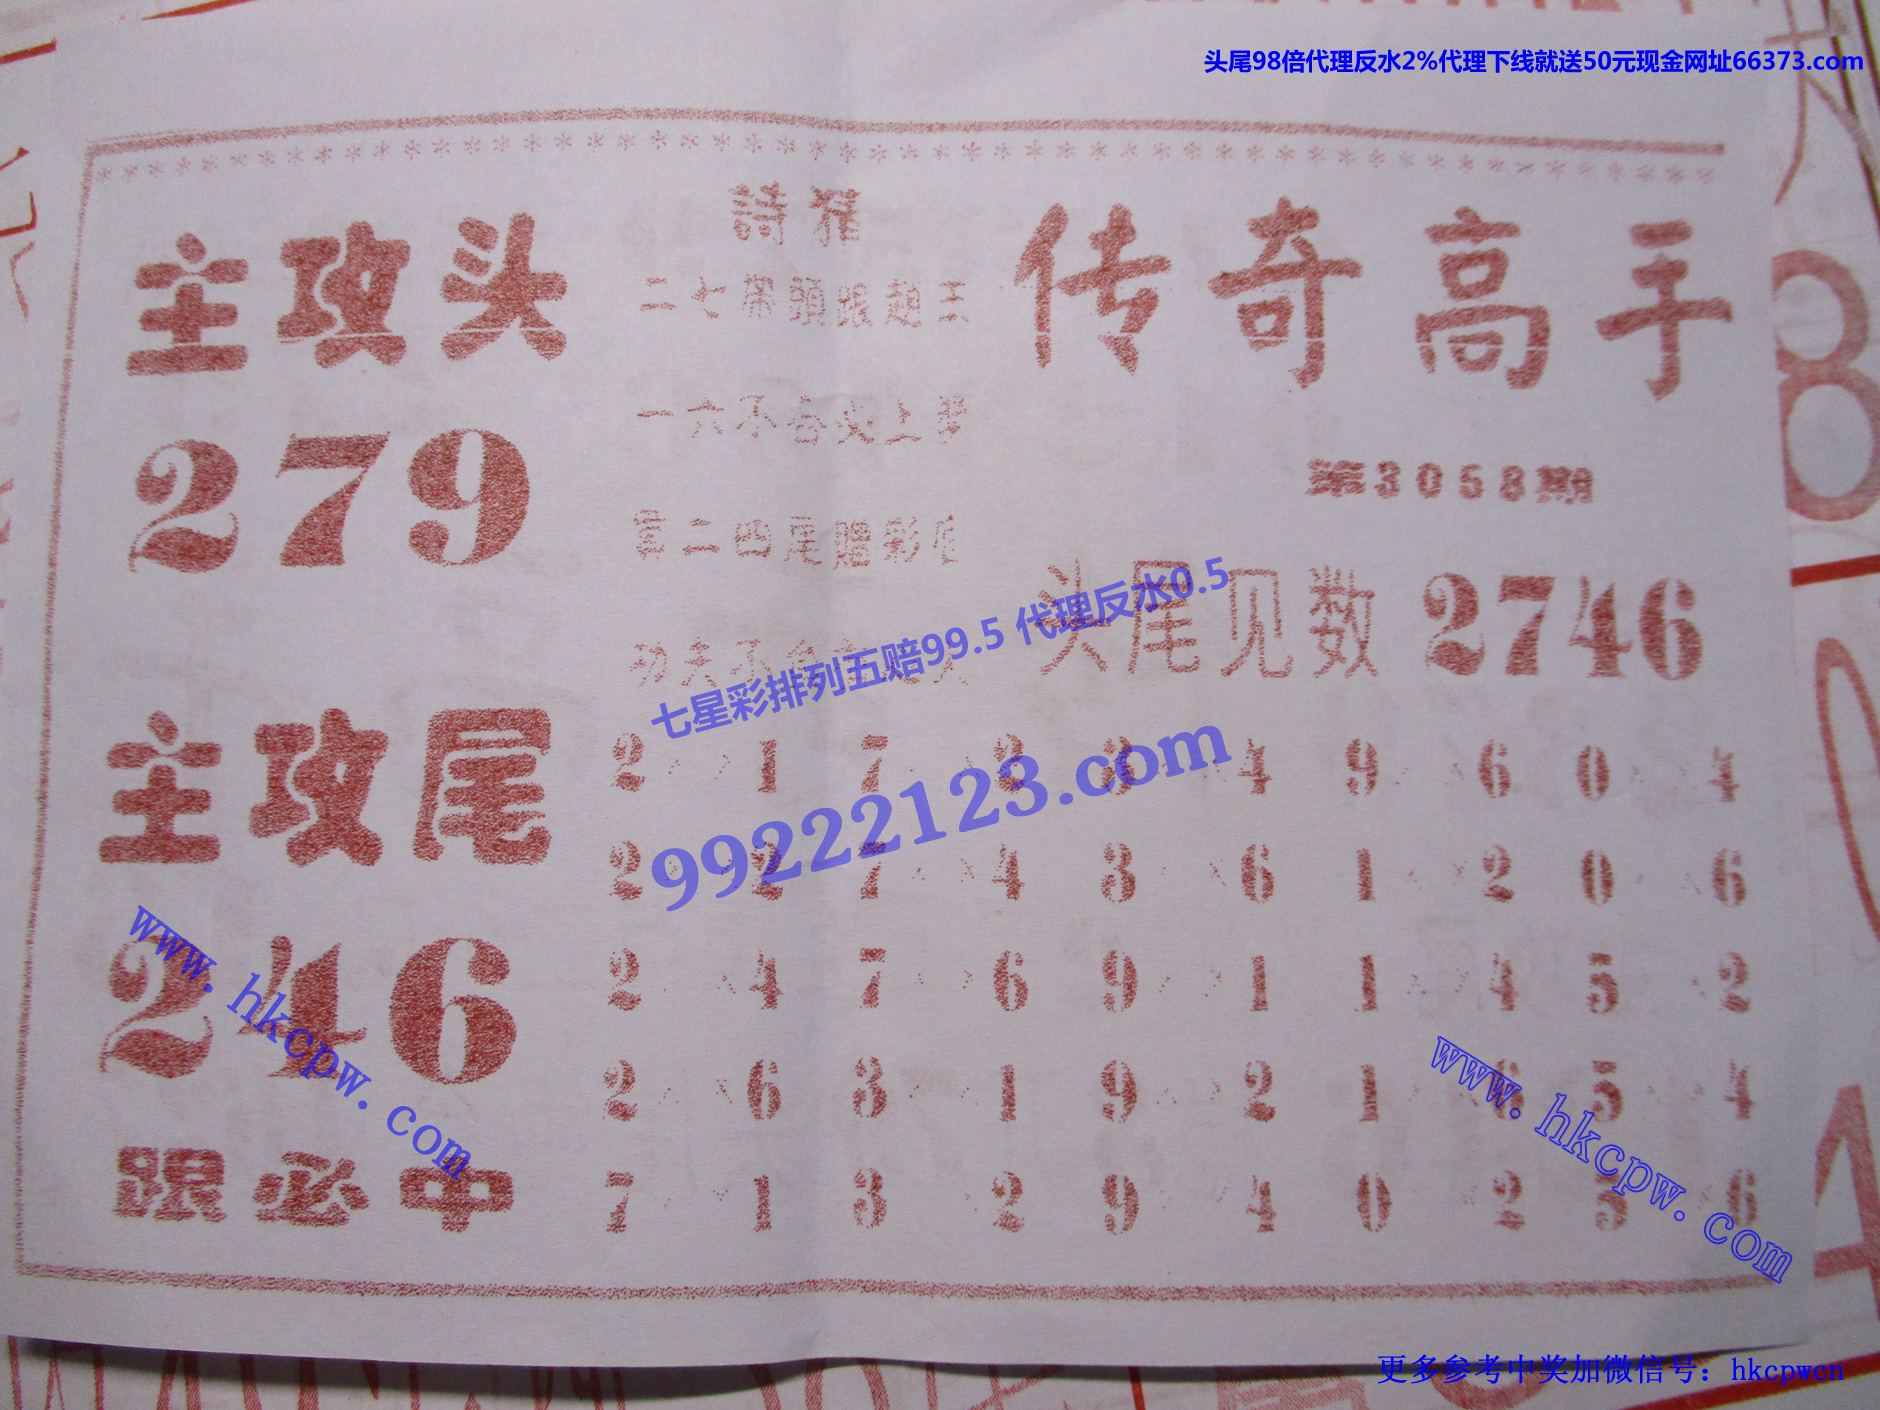 头尾98倍代理反水2%代理下线就送50元现金网址66373.com
传奇高手
第3058期
主攻头
279
主攻尾
246
跟必中
詩猜
二七帶頭跟趙王
一六不合必上夢
二四尾贈彩
功夫不
头尾见数 2746
七星彩排列五赔99.5 代理反水0.5
99222123.com
2 1 7 2 3 4 9 6 0 4
2 2 7 4 3 6 1 2 0 6
2 4 7 6 9 1 1 4 5 2
2 6 3 1 9 2 1 6 5 4
7 1 3 2 9 4 0 2 5 6
www.hkcpw.com
www.hkcpw.com
更多参考中奖加微信号：hkcpwcn